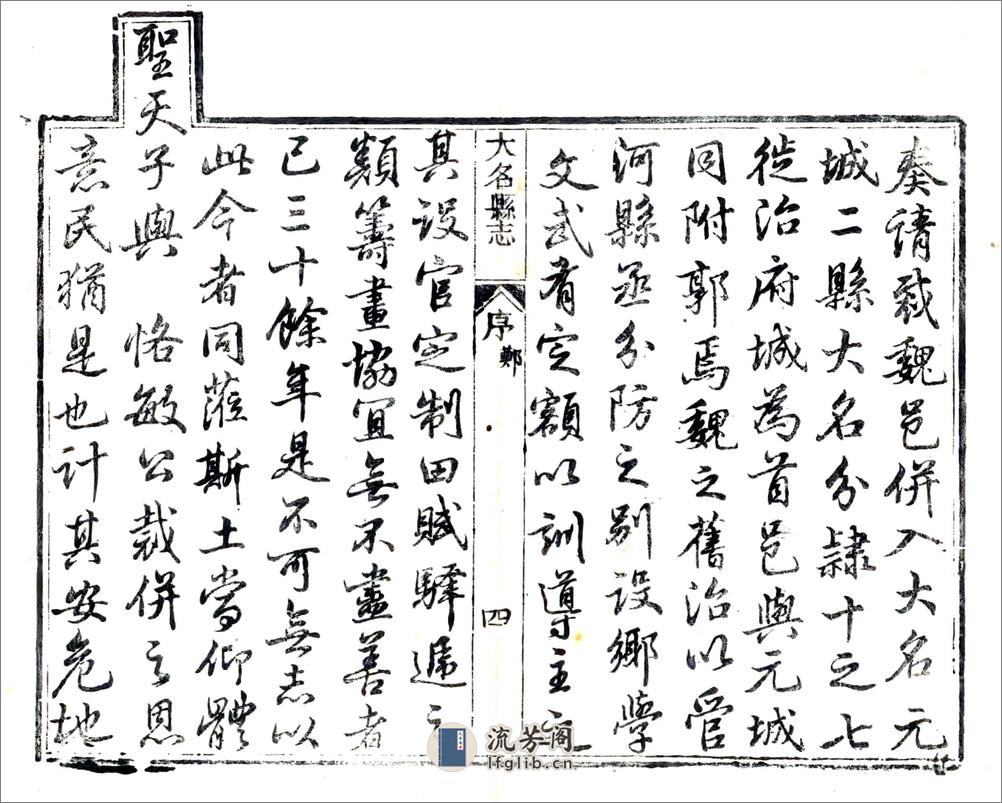 奏請裁魏邑併入大名元
城二縣大名分隷十之七
徙治府城為首邑與元城
同附郭焉魏之舊治以管
河縣丞分防之別設鄉學
文武有定額以訓導主之
大名縣志
序
鄭
四
其設官定制田賦驛遞之
類籌畫協宜無不盡善者
已三十餘年是不可無志以
此今者同蒞斯土當仰體
聖天子與 恪敏公裁併之恩
意民猶是也計其安危地
流芳阁
lfglib.cn